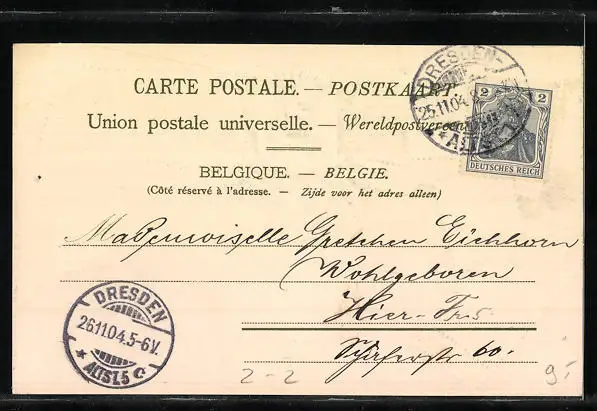 CARTE POSTALE. — POSTKAART.
Union postale universelle. — Wereldpostvereeniging
BELGIQUE. — BELGIE.
(Côté réservé à l'adresse. — Zijde voor het adres alleen)
DRESDEN-
25.11.04
* ALTST.
2 2
DEUTSCHES REICH
Mademoiselle Gretchen Eichhorn
Wohlgeboren
Hier-Fr.
60.
DRESDEN
26.11.04.5-6V.
* ALTST.5 c
2-2
9,-